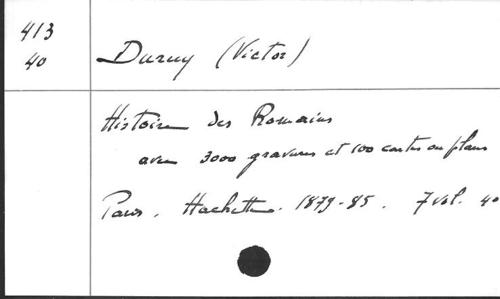 413
40
Duruy (Victor)
Histoire des Romains
avec 3000 gravures et 100 cartes ou plans
Paris. Hachette. 1879-85. 7 vol. 40